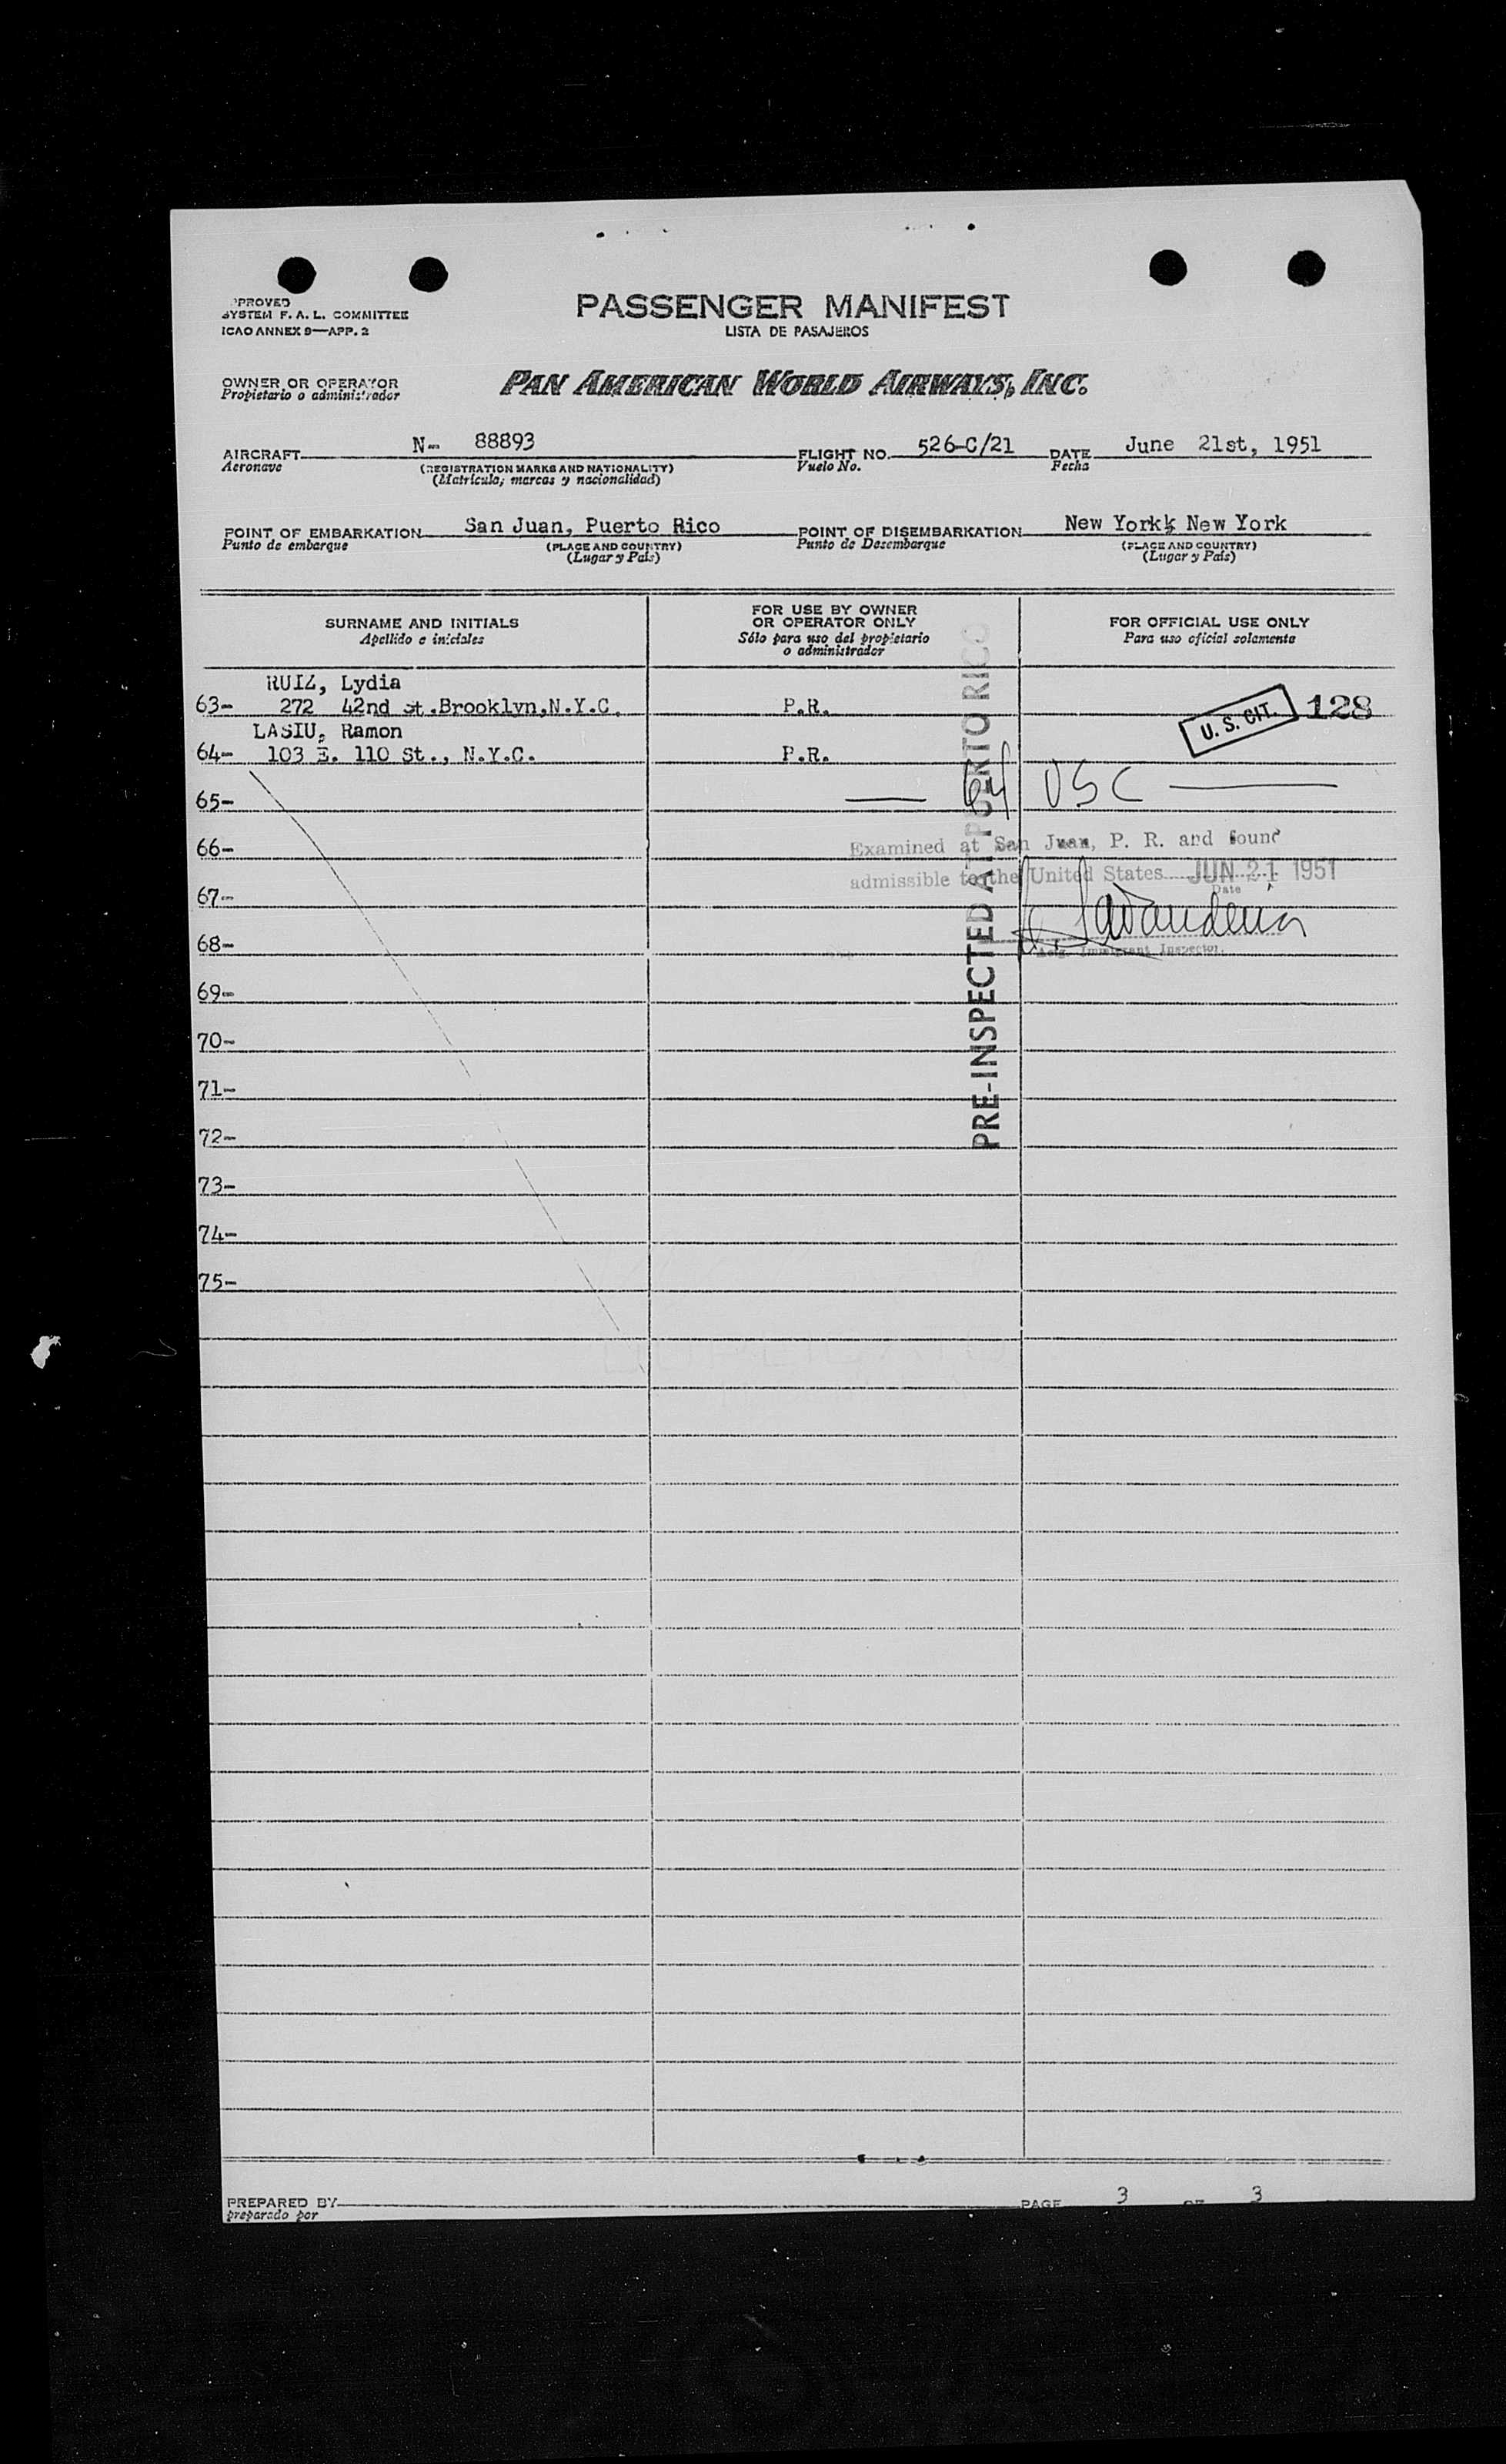 PPROVED
SYSTEM F. A. L. COMMITTEE
ICAO ANNEX 9—APP. 2
PASSENGER MANIFEST
LISTA DE PASAJEROS
OWNER OR OPERATOR
Propietario o administrador
PAN AMERICAN WORLD AIRWAYS, INC.
AIRCRAFT N- 88893 FLIGHT NO. 526-C/21 DATE June 21st, 1951
Aeronave (REGISTRATION MARKS AND NATIONALITY) Vuelo No. Fecha
(Matricula, marcas y nacionalidad)
POINT OF EMBARKATION San Juan, Puerto Rico POINT OF DISEMBARKATION New York, New York
Punto de embarque (PLACE AND COUNTRY) Punto de Desembarque (PLACE AND COUNTRY)
(Lugar y País) (Lugar y País)
SURNAME AND INITIALS
Apellido e iniciales
FOR USE BY OWNER
OR OPERATOR ONLY
Sólo para uso del propietario
o administrador
FOR OFFICIAL USE ONLY
Para uso oficial solamente
RUIZ, Lydia
63- 272 42nd st.Brooklyn,N.Y.C. P.R. U. S. CIT. 128
LASIU, Ramon
64- 103 E. 110 St., N.Y.C. P.R.
65- 64 USC
66- Examined at San Juan, P. R. and found
admissible to the United States JUN 21 1951
Date
67-
68-
Immigrant Inspector.
69-
70-
71-
72-
73-
74-
75-
PRE-INSPECTED AT PUERTO RICO
PREPARED BY PAGE 3 OF 3
preparado por